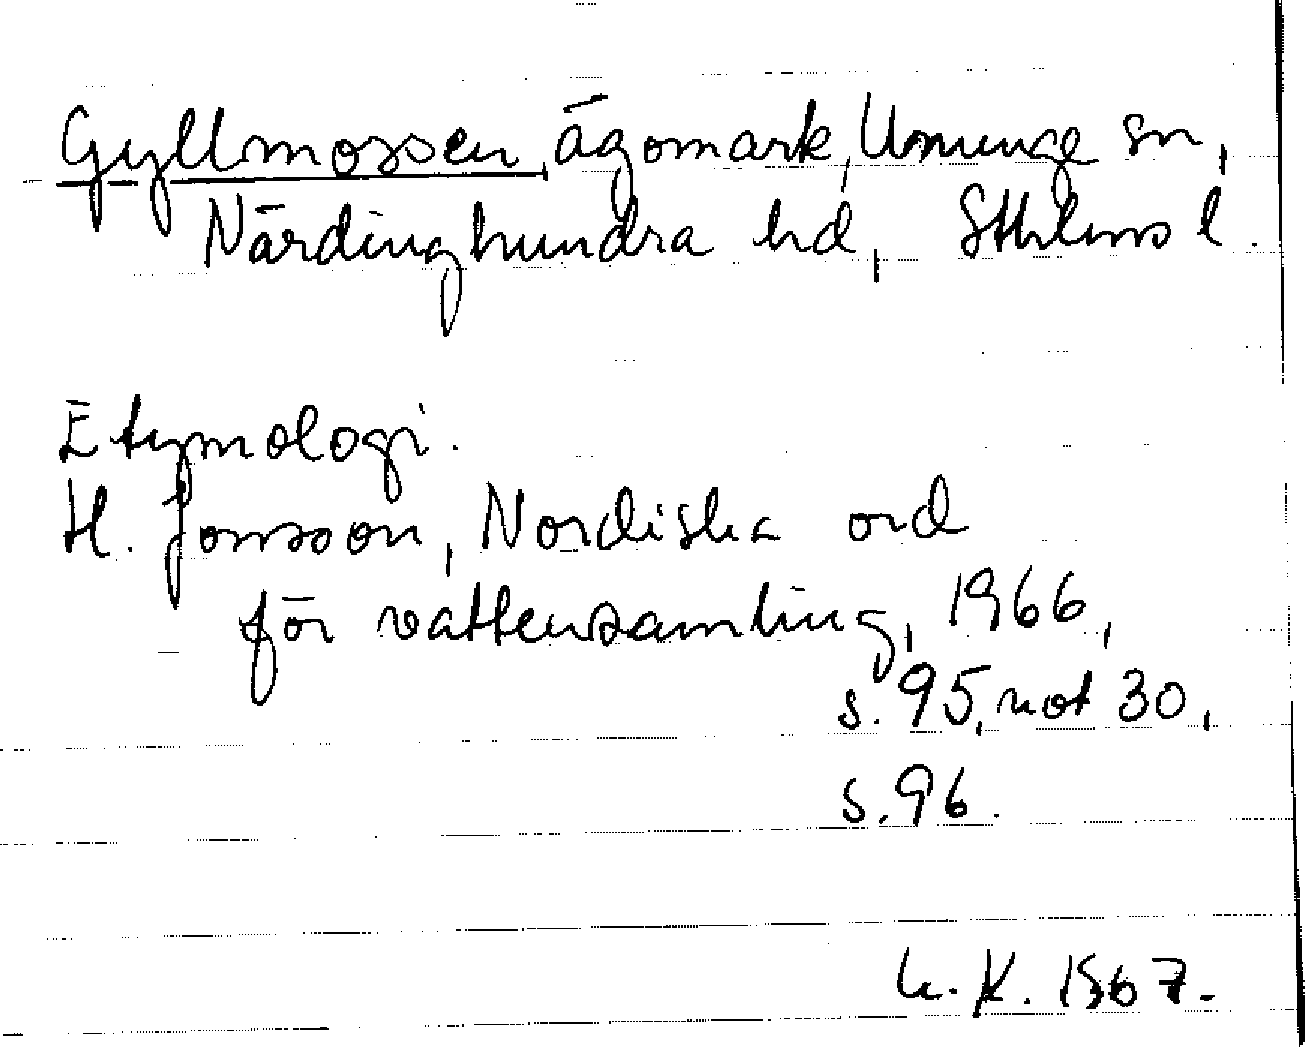 Gyllmossen, ägomark, Ununge sn,
Närdinghundra hd, Sthlms l.
Etymologi.
H. Jonsson, Nordiska ord
för vattensamling, 1966,
s. 95, not 30,
s. 96.
K. 1967.